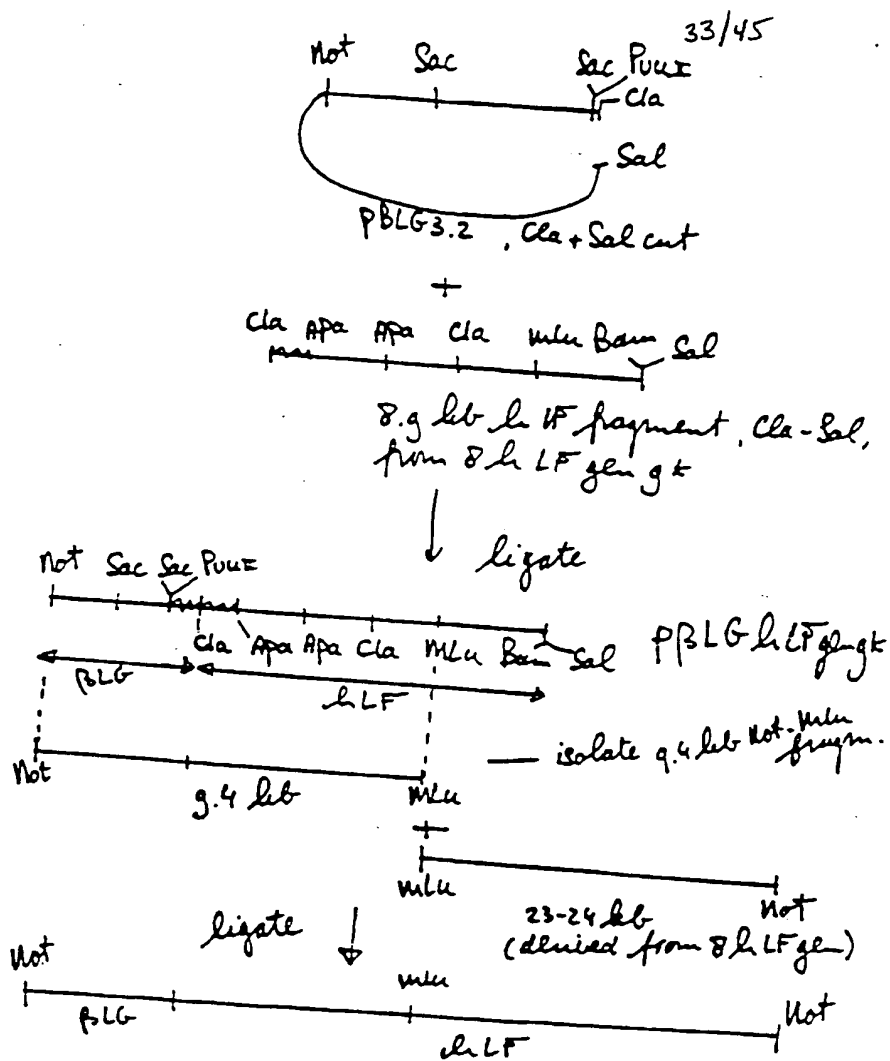 33/45
Not Sac Sac PvuII
Cla
Sal
pBLG3.2, Cla + Sal cut
+
Cla Apa Apa Cla Mlu Bam Sal
8.9 kb hLF fragment, Cla-Sal,
from 8 hLF gen gk
ligate
Not Sac Sac PvuII
Cla Apa Apa Cla Mlu Bam Sal pβLG hLF gen gk
βLG
hLF
— isolate 9.4 kb Not-Mlu
fragm.
Not 9.4 kb Mlu
+
Mlu 23-24 kb Not
(derived from 8 hLF gen)
ligate
Not Mlu Not
βLG hLF